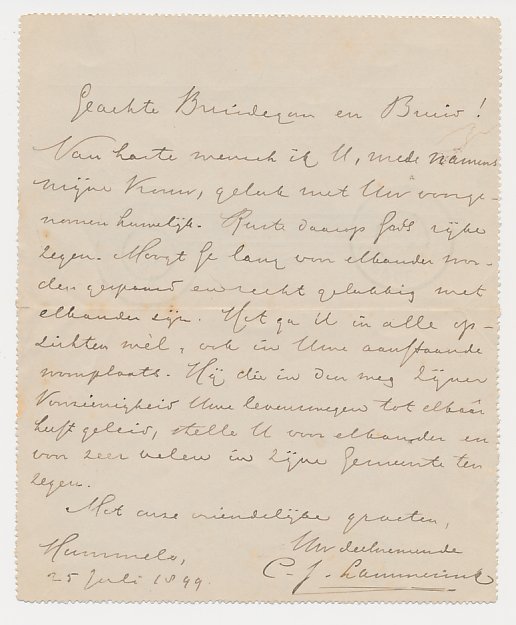 Geachte Bruidegom en Bruid!
Van harte wensch ik U, mede namens
mijne Vrouw, geluk met Uw voorge-
nomen huwelijk. Ruste daarop Gods rijke
zegen. Moogt Ge lang voor elkander wor-
den gespaard en recht gelukkig met
elkander zijn. Het ga U in alle op-
zichten wèl, ook in Uwe aanstaande
woonplaats. Hij die in den weg Zijner
Voorzienigheid Uwe levenswegen tot elkaar
heeft geleid, stelle U voor elkander en
voor zeer velen in Zijne Gemeente ten
zegen.
Met onze vriendelijke groeten,
Uw deelnemende
Hummelo,
25 Juli 1899.
C. J. Lammerink